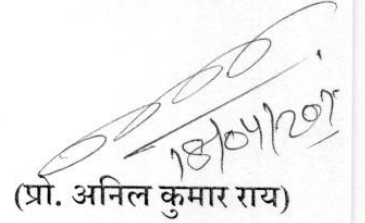 18/04/201
(प्रो. अनिल कुमार राय)